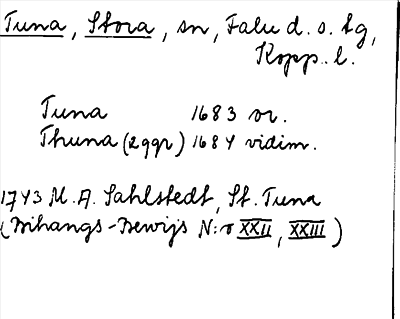 Tuna, Stora, sn, Falu d. s. tg,
Kopp. l.
Tuna 1683 or.
Thuna (2 ggr) 1684 vidim.
1743 M. A. Sahlstedt, St. Tuna
(Bihangs-Bewijs N:o XXII, XXIII)